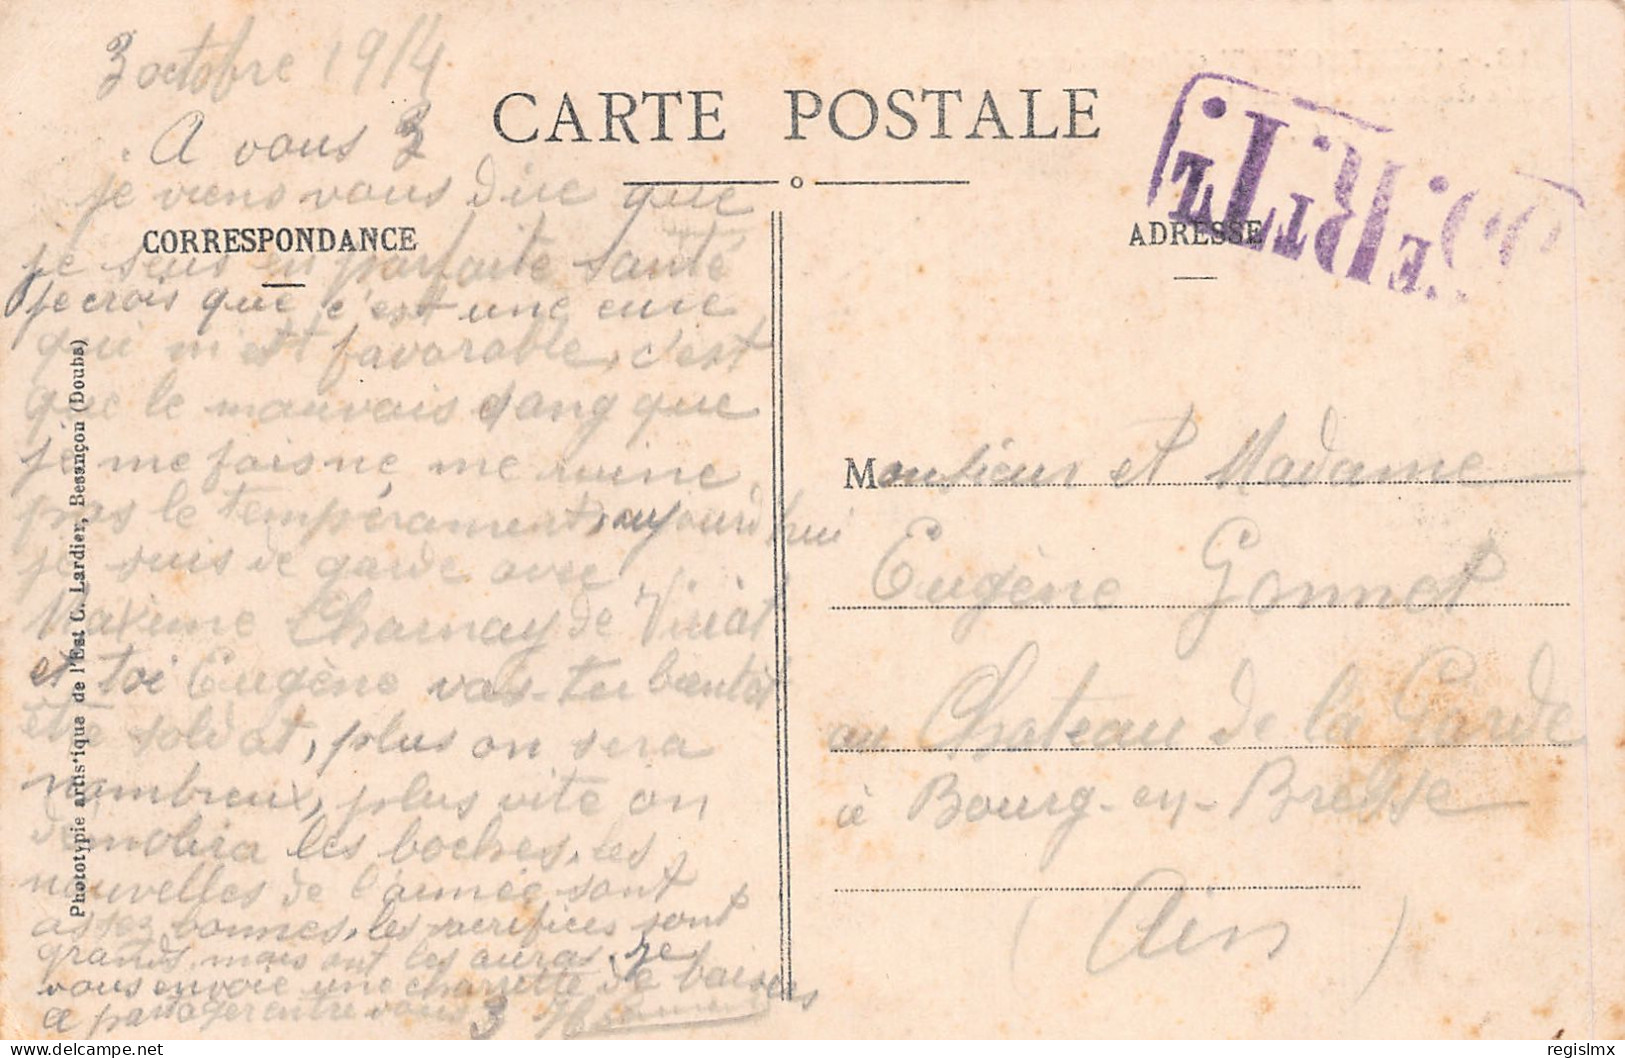 3 octobre 1914
A vous 3
je viens vous dire que
je suis en parfaite santé
je crois que c'est une cure
qui m'est favorable, c'est
que le mauvais sang que
je me fais ne me ruine
pas le tempérament, aujourd'hui
je suis de garde avec
Maxime Charnay de Viriat
et toi Eugène vas-tu bientôt
être soldat, plus on sera
nombreux, plus vite on
démolira les boches, les
nouvelles de l'armée sont
assez bonnes, les sacrifices sont
grands, mais ont les auras, je
vous envoie une charrette de baisers
a partager entre vous 3
CARTE POSTALE
CORRESPONDANCE
ADRESSE
Monsieur et Madame
Eugène Gonnet
au Chateau de la Garde
à Bourg-en-Bresse
(Ain)
Phototypie artistique de l'Est C. Lardier, Besançon (Doubs)
© regislmx